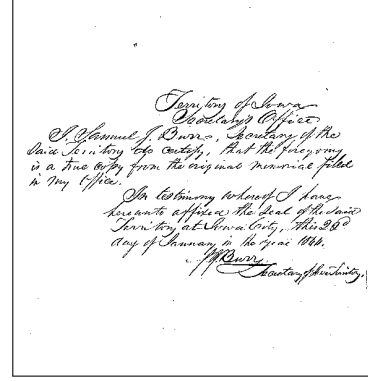 Territory of Iowa
Secretary's Office
I, Samuel J. Burr, Secretary of the
said Territory do certify, that the foregoing
is a true copy from the original memorial filed
in my Office.
In testimony whereof I have
hereunto affixed the Seal of the said
Territory at Iowa City, this 26d
day of January in the year 1844.
S J Burr.
Secretary of Iowa Territory.